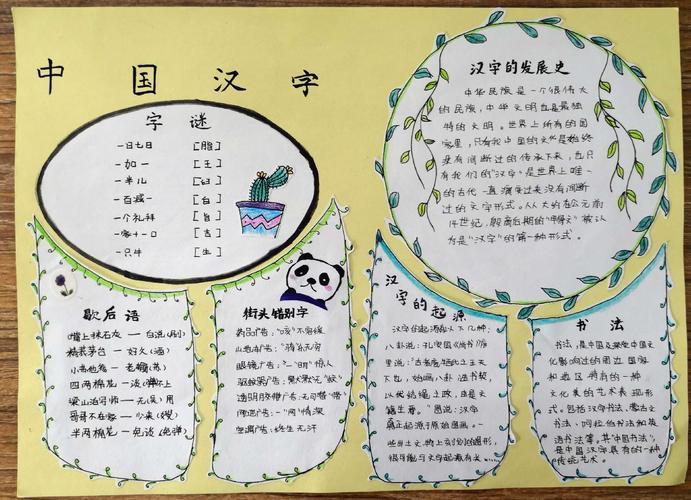 中国汉字
字谜
一日七日 [脂]
一加一 [王]
一半儿 [臼]
一百减一 [白]
一个礼拜 [旨]
一家十一口 [吉]
一只牛 [生]
汉字的发展史
中华民族是一个很伟大
的民族,中华文明也是最独
特的文明。世界上所有的国
家里,只有我中国的文化是始终
没有间断过的传承下来,也只
有我们的"汉字"是世界上唯一
的古代一直演变过来没有间断
过的文字形式。从大约在公元前
14世纪,殷商后期的"甲骨文"被认
为是"汉字"的第一种形式。
歇后语
墙上抹石灰——白说(刷)
精装茅台——好久(酒)
四两棉花——谈(弹)不上
梁山泊军师——无(吴)用
哥哥不在家——少来(嫂)
半两棉花——免谈(免弹)
街头错别字
药品广告:"咳"不容缓
山地车广告:"骑"乐无穷
眼镜广告:一"明"惊人
驱蚊器广告:默默无"蚊"
透明胶带广告:无可"带"
网吧广告:一"网"情深
空调广告:终生无汗
汉字的起源
汉字的起源有以下几种:
八卦说:孔安国《尚书》序
里说:"古者庖牺氏之王天
下也,始画八卦,造书契,
以代结绳之政,由是文
籍生焉。"图说:汉字
真正起源于原始图画。一
些出土文物上刻划的图形,
很可能与文字起源有关
书法
书法,是中国及深受中国文
化影响过的周边国家
和地区特有的一种
文化美的艺术表现形
式。包括汉字书法、蒙古文
书法、阿拉伯书法和英
语书法等。其"中国书法",
是中国汉字具有的一种
传统艺术。